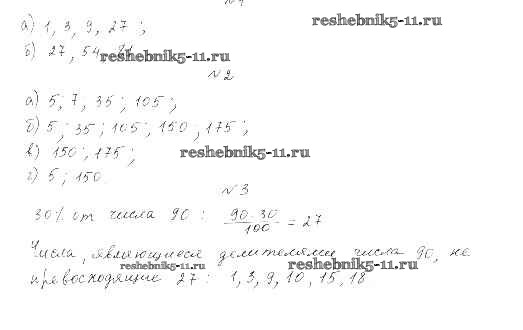 reshebnik5-11.ru
а) 1, 3, 9, 27 ;
б) 27, 54, reshebnik5-11.ru
№2
а) 5; 7, 35; 105;
б) 5; 35; 105; 150; 175;
в) 150; 175; reshebnik5-11.ru
г) 5; 150.
№3
30% от числа 90 : 90·30/100 = 27
Числа, являющиеся делителями числа 90, не
reshebnik5-11.ru reshebnik5-11.ru
превосходящие 27 : 1, 3, 9, 10, 15, 18